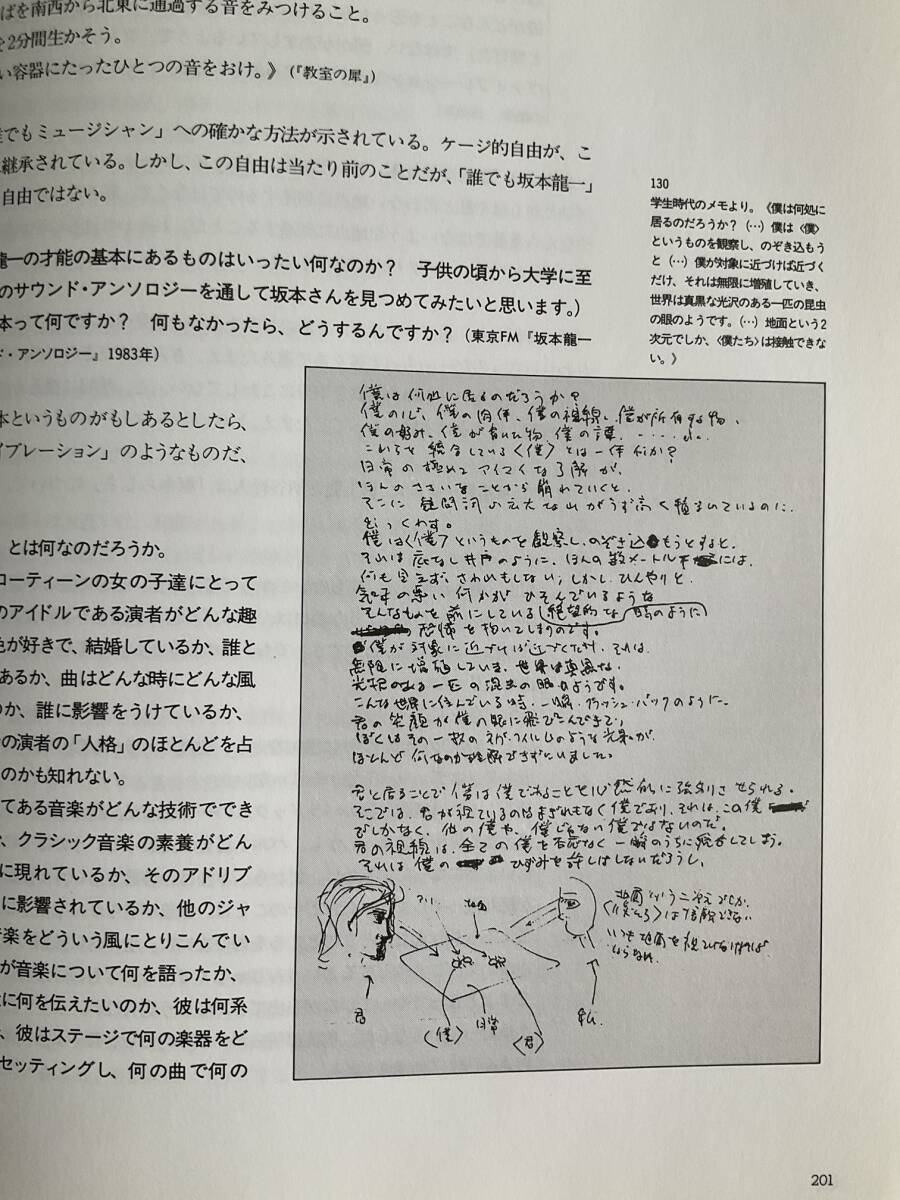 ばを南西から北東に通過する音をみつけること。
を2分間生かそう。
い容器にたったひとつの音をおけ。》（『教室の犀』）
誰でもミュージシャン」への確かな方法が示されている。ケージ的自由が、こ
継承されている。しかし、この自由は当たり前のことだが、「誰でも坂本龍一」
自由ではない。
龍一の才能の基本にあるものはいったい何なのか？　子供の頃から大学に至
のサウンド・アンソロジーを通して坂本さんを見つめてみたいと思います。）
本って何ですか？　何もなかったら、どうするんですか？（東京FM『坂本龍一
ド・アンソロジー』1983年）
本というものがもしあるとしたら、
イブレーション」のようなものだ、
」とは何なのだろうか。
ローティーンの女の子達にとって
のアイドルである演者がどんな趣
色が好きで、結婚しているか、誰と
あるか、曲はどんな時にどんな風
のか、誰に影響をうけているか、
の演者の「人格」のほとんどを占
のかも知れない。
てある音楽がどんな技術ででき
、クラシック音楽の素養がどん
に現れているか、そのアドリブ
に影響されているか、他のジャ
音楽をどういう風にとりこんでい
が音楽について何を語ったか、
に何を伝えたいのか、彼は何系
、彼はステージで何の楽器をど
セッティングし、何の曲で何の
130
学生時代のメモより。《僕は何処に
居るのだろうか？（…）僕は〈僕〉
というものを観察し、のぞき込もう
と（…）僕が対象に近づけば近づく
だけ、それは無限に増殖していき、
世界は真黒な光沢のある一匹の昆虫
の眼のようです。（…）地面という2
次元でしか、〈僕たち〉は接触できな
い。》
僕は何処に居るのだろうか？
僕の心、僕の肉体、僕の視線、僕が所有する物、
僕の好み、僕が書いた物、僕の譚、
これらを統合している〈僕〉とは一体何か？
日常の極めてアイマイな了解が、
ほんのささいなことから崩れていくと、
そこに疑問河の広大な山がうず高く積まれているのに
でっくわす。
僕は〈僕〉というものを観察し、のぞき込もうとすると、
それは底なし井戸のように、ほんの数メートル下には、
何も見えず、さわれもしない、しかし、ひんやりと、
気味の悪い何かがひそんでいるような
そんなものを前にしている絶望的な時のように
恐怖を抱いてしまうのです。
僕が対象に近づけば近づくだけ、それは
無限に増殖していき、世界は真黒な
光沢のある一匹の昆虫の眼のようです。
こんな世界に住んでいる時、一瞬、フラッシュ・バックのように
君の笑顔が僕の眼に飛びこんできて、
ぼくはその一枚のネガ・フィルムのような光景が、
ほとんど何なのか理解できずにいました。
君と居ることで僕は僕であることを
そこでは、君が視ているのはまぎれもなく僕であり、それは、この僕
でしかなく、他の僕や、僕じゃない僕ではないのだ。
君の視線は、全ての僕を否応なく一瞬のうちに
それは僕のひずみを許しはしないだろうし、
地面
君
〈僕〉
日常
〈君〉
私
地面という二次元でしか、
〈僕たち〉は接触できない
201